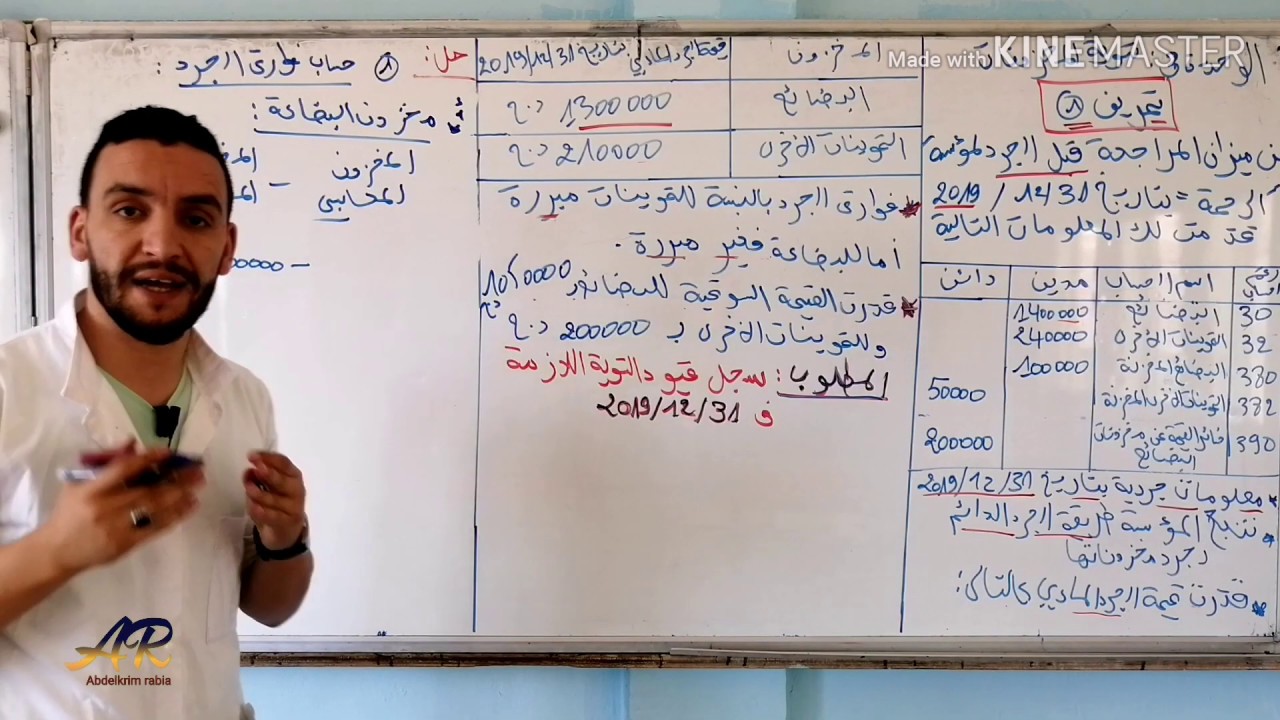 Made with KINEMASTER
تمرين ①
من ميزان المراجعة قبل الجرد لمؤسسة
الرحمة بتاريخ 31 / 12 / 2019
قدمت لك المعلومات التالية
اسم الحساب مدين دائن
30 البضائع 1400000
32 التموينات الأخرى 240000
380 البضائع المخزنة 100000
382 التموينات الأخرى المخزنة 50000
390 خسائر القيمة عن مخزونات البضائع 200000
معلومات جردية بتاريخ 31/ 12/ 2019
تتبع المؤسسة طريقة الجرد الدائم
لجرد مخزوناتها
قدرت قيمة الجرد المادي كالتالي:
المخزون قيمة الجرد المادي بتاريخ 31/ 12/ 2019
البضائع 1300000 دج
التموينات الأخرى 210000 دج
فوارق الجرد بالنسبة للتموينات مبررة
أما للبضاعة فغير مبررة.
قدرت القيمة السوقية للبضائع 1050000 دج
وللتموينات الأخرى بـ 200000 دج
المطلوب: سجل قيود التسوية اللازمة
في 31/ 12/ 2019
حل: ① حساب فوارق الجرد:
أ/ مخزون البضاعة:
المخزون
المحاسبي
-
AR
Abdelkrim rabia